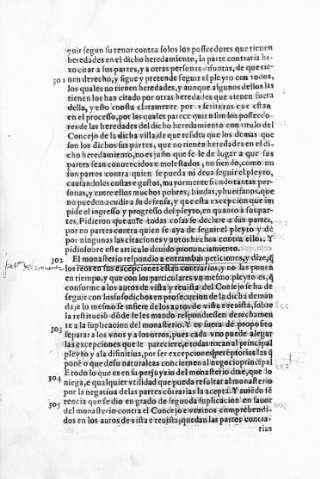 quir segun su tenor contra solos los posseedores que tienen
heredades en el dicho heredamiento, la parte contraria ha
zo citar a sus partes, y a otras personas difuntas, de que tie-
301 nen derecho, y sigue y pretende seguir el pleyto con todos,
los quales no tienen heredades, y aunque algunos dellos las
tienen los han citado por otras heredades que tienen fuera
della, y esto consta claramente por escrituras que estan
en el processo, por las quales parece que ni son los posseedo-
res de las heredades del dicho heredamiento con titulo del
Concejo de la dicha villa, de que resulta que los demas que
son los dichos sus partes, que no tienen heredades en el di-
cho heredamiento, no es justo que se le de lugar a que sus
partes sean convenidos y molestados, no siendo, como no
son partes contra quien se pueda ni deva seguir el pleyto,
causandoles costas e gastos, mayormente siendo tantas per-
sonas, y entre ellos muchos pobres, biudas, y huerfanos, que
no pueden acudir a su defensa, y que esta excepcion que im
pide el ingresso y progresso del pleyto, en quanto a sus par-
tes. Pidieron que ante todas cosas se declare a sus partes,
por no partes contra quien se aya de seguir el pleyto y dè
por ningunas las citaciones y autos hechos contra ellos. Y
pidio sobre este articulo devido pronunciamiento.
302 El monasterio respondio a entrambas peticiones, y dize, q̃
los reos en sus excepciones estan contrarios, y no las ponen
en tiempo, y que con los particulares ya mesmo pleyto es, q̃
conforme a los autos de vista y revista del Concejo se ha de
seguir con los susodichos en prosecucion de la dicha deman
da, e lo mesmo se infiere de los autos de vista e revista, sobre
la restitució dõde fe les mando respondiessen derechamen
te a la suplicacion del monasterio. Y es fuera de proposito
303 separar a los vnos y a los otros, pues cada vno puede alegar
las excepciones que le pareciere, e todas tocan al principal
pleyto y a la difinitiva, por ser excepciones peremptorias las q̃
pone o que de su naturaleza conciernen al negocio principal
E todo lo que es en su perjuyzio del monasterio dize, que lo
304 niega, e qualquier vtilidad que pueda resultar al monasterio
por la negativa de las partes contrarias la acepta. Y assi no se
tencia que se dio en grado de segunda suplicacion en favor
305 del monasterio contra el Concejo e vezinos comprehendi-
dos en los autos de vista e revista, quedan las partes contra-
rias